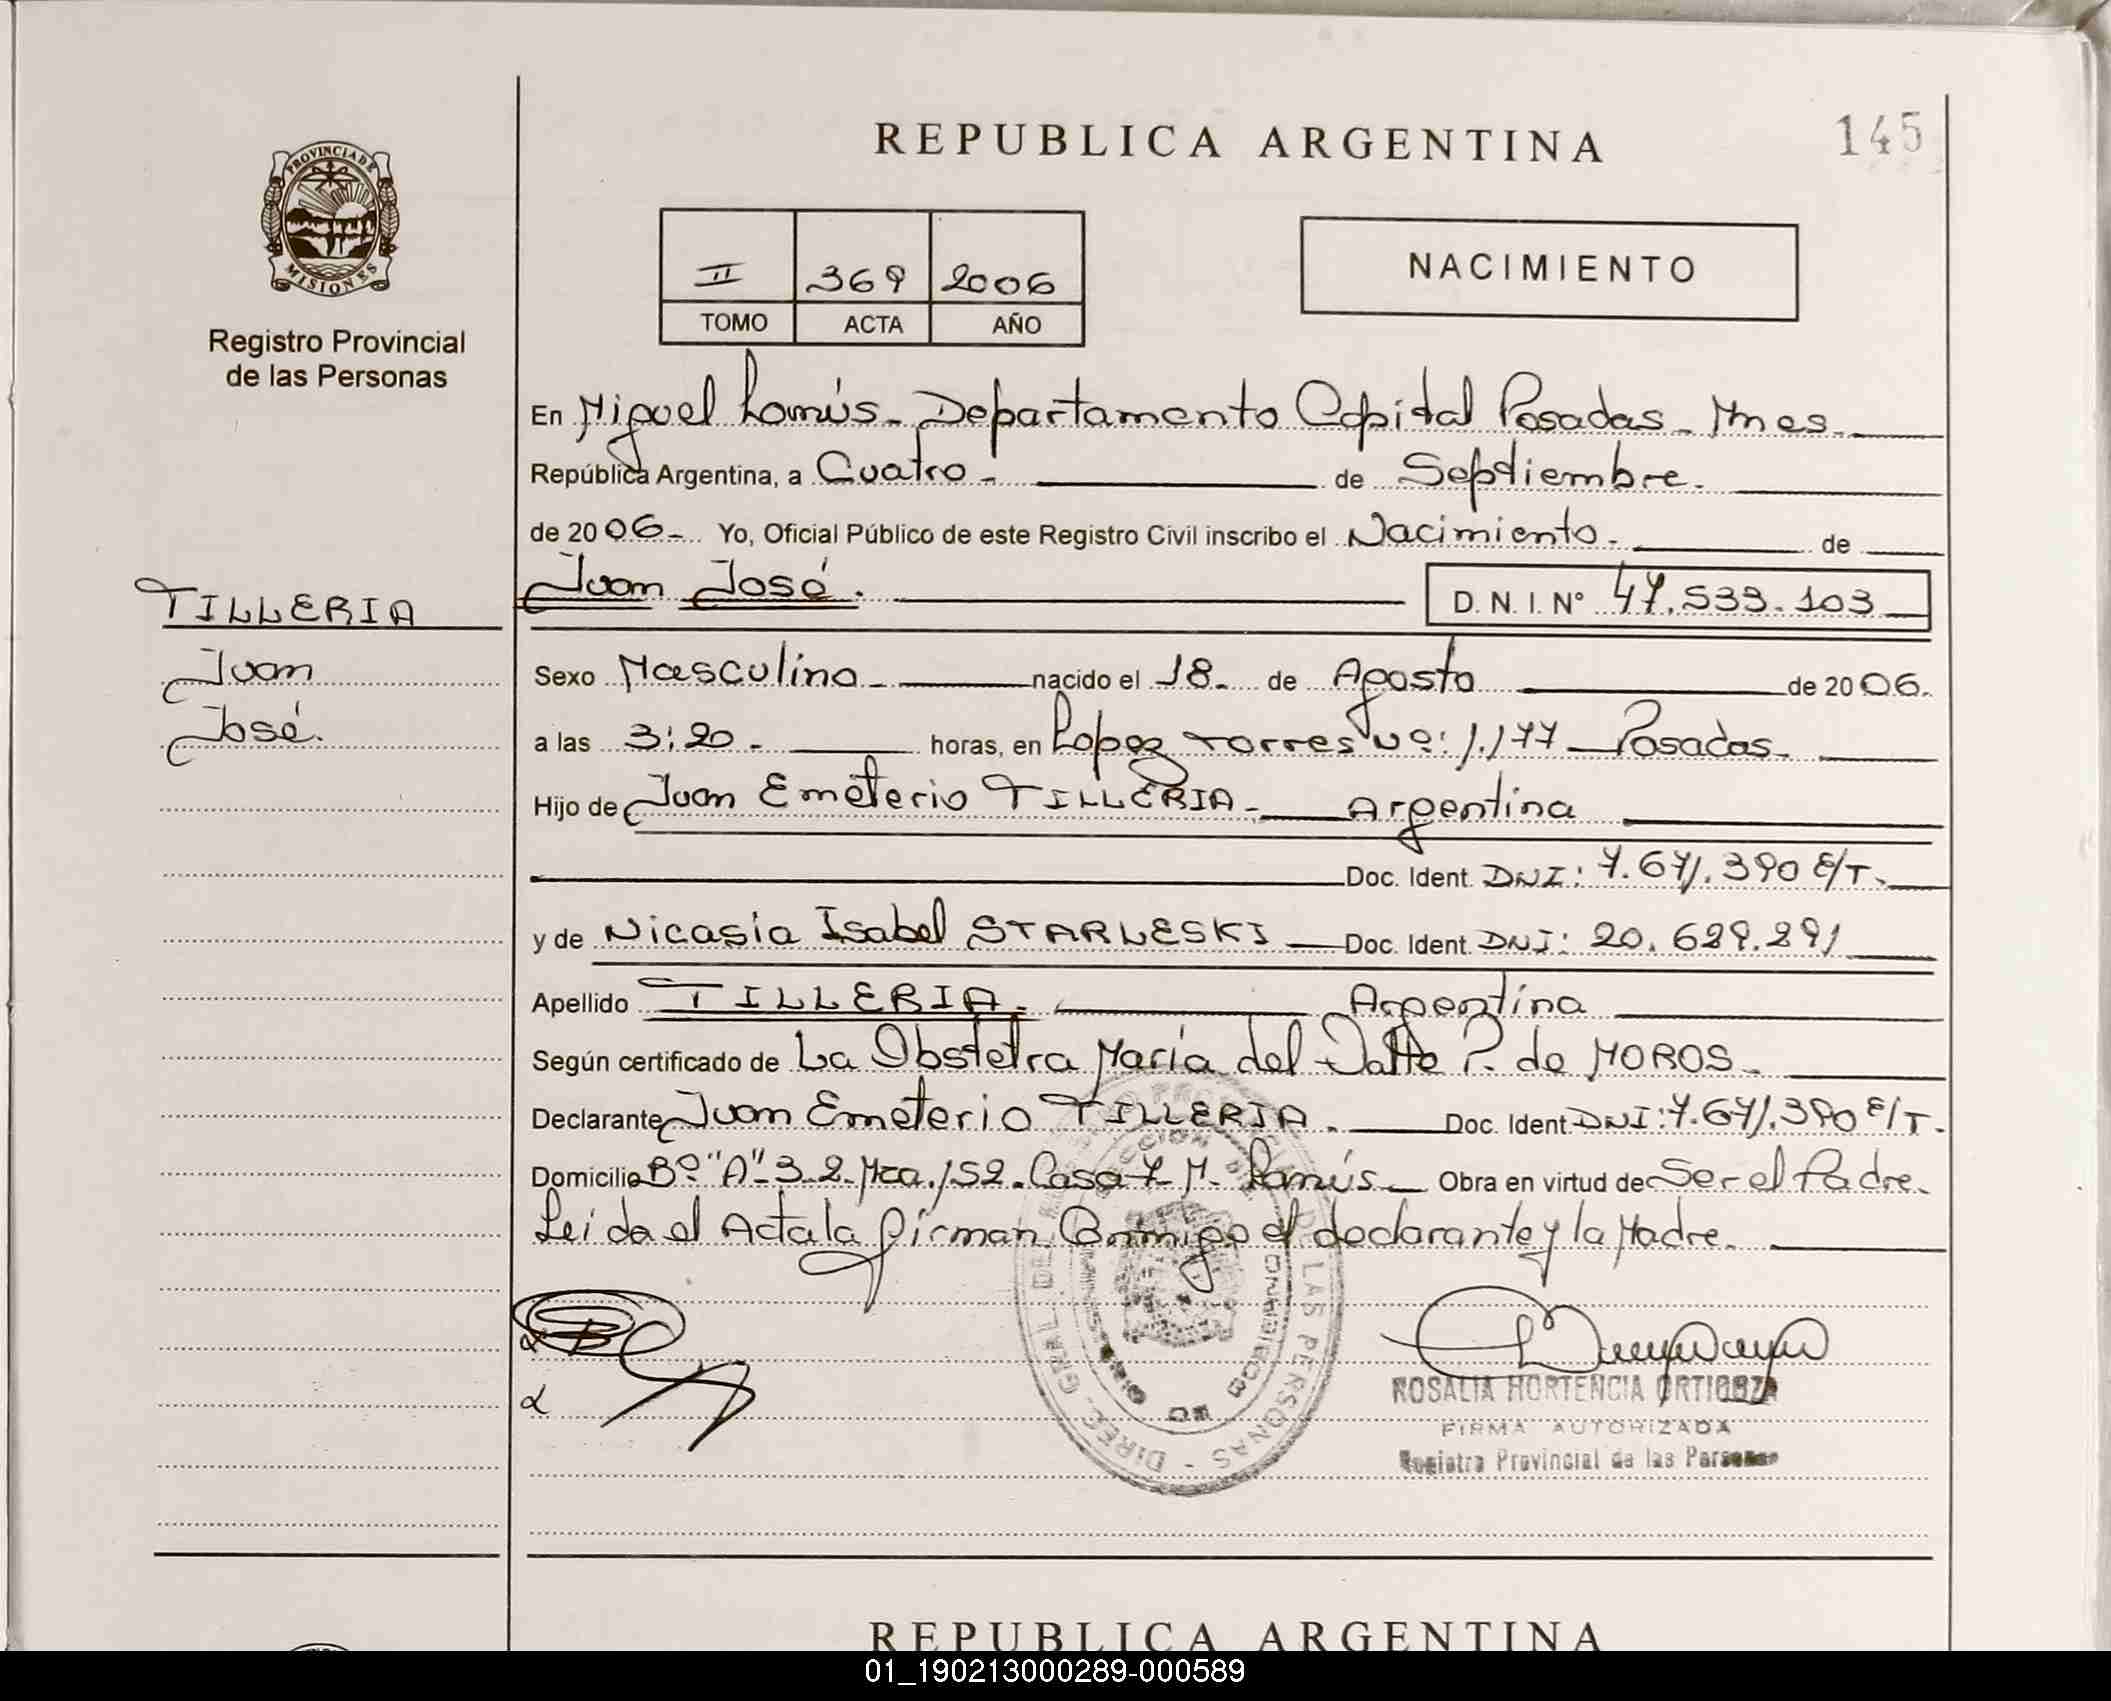 REPUBLICA ARGENTINA
145
PROVINCIA DE
MISIONES
Registro Provincial
de las Personas
II 369 2006
TOMO ACTA AÑO
NACIMIENTO
En Miguel Lanús - Departamento Capital Posadas - Mnes.
República Argentina, a Cuatro - de Septiembre.
de 2006 - Yo, Oficial Público de este Registro Civil inscribo el Nacimiento - de
Juan José. D. N. I. N° 47.533.103
TILLERIA
Juan
José.
Sexo Masculino - nacido el 18 - de Agosto de 2006.
a las 3:20 - horas, en Lopez Torres Nº: 1.177 - Posadas -
Hijo de Juan Emeterio TILLERIA - Argentina
Doc. Ident. DNI: 7.671.390 E/T.
y de Nicasia Isabel STARLESKI - Doc. Ident. DNI: 20.629.291
Apellido TILLERIA - Argentina
Según certificado de La Obstetra María del Valle P. de MOROS -
Declarante Juan Emeterio TILLERIA - Doc. Ident DNI: 7.671.390 E/T.
Domicilio Bº "A" - 3-2-Mza. 152 - Casa 7 - M. Lanús - Obra en virtud de Ser el Padre.
Leida el Acta la firman Conmigo el declarante y la Madre.
DIREC. GRAL. DEL LAS PERSONAS
ROSALIA HORTENCIA ORTIGOZA
FIRMA AUTORIZADA
Registro Provincial de las Personas
REPUBLICA ARGENTINA
01_190213000289-000589